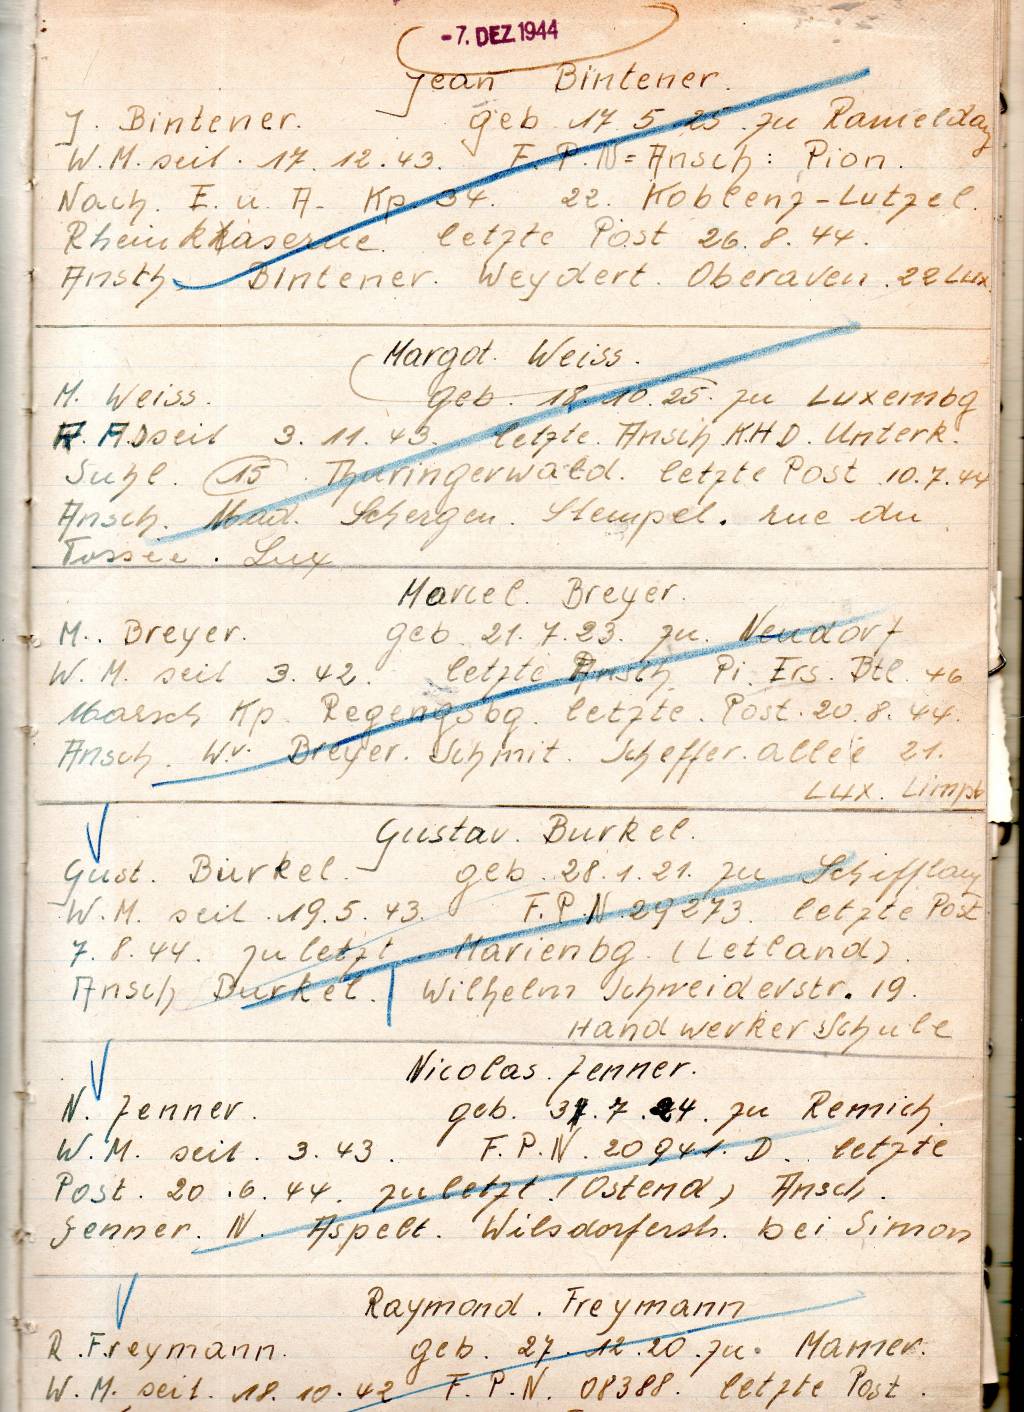 -7. DEZ 1944
Jean Bintener.
J. Bintener. geb 17 5 25 zu Rameldang
W.M. seit. 17. 12. 43. F.P.N= Ansch: Pion.
Nach. E. u. A. Kp. 34. 22. Koblenz-Lutzel.
letzte Post 26. 8. 44.
Ansch Bintener. Weydert. Oberaven. 22 Lux.
Margot. Weiss.
M. Weiss. geb. 18. 10. 25. zu Luxembg
A.D seit 3. 11. 43. letzte. Ansch K.H.D. Unterk.
Suhl. (15) Thuringerwald. letzte Post 10.7.44
Ansch. Mad. Schergen. Stempel. rue du
Fossee. Lux
Marcel. Breyer.
M.. Breyer. geb. 21. 7. 23. zu. Neudorf
W.M. seit 3. 42. letzte Ansch. Pi. Ers. Btl. 46
Marsch Kp. Regengsbg. letzte. Post. 20. 8. 44.
Ansch. Wv. Breyer. Schmit. Scheffer. allée 21.
Lux. Limpb
Gustav. Burkel.
Gust. Burkel. geb. 28. 1. 21. zu Schifflang
W.M. seit. 19. 5. 43. F.P.N. 29273. letzte Post
7. 8. 44. zuletzt. Marienbg. (Letland).
Ansch Burkel. Wilhelm Schneiderstr. 19.
Handwerker Schule
Nicolas. Jenner.
N. Jenner. geb. 7. 24. zu Remich.
W.M. seit. 3. 43. F.P.N. 20941. D. letzte
Post. 20. 6. 44. zuletzt. (Ostend) Ansch.
Jenner. N. Aspelt. Wilsdorferstr. bei Simon
Raymond. Freymann
R. Freymann. geb. 27. 12. 20. zu. Mamer.
W.M. seit. 18. 10. 42 F.P.N. 08388. letzte Post.